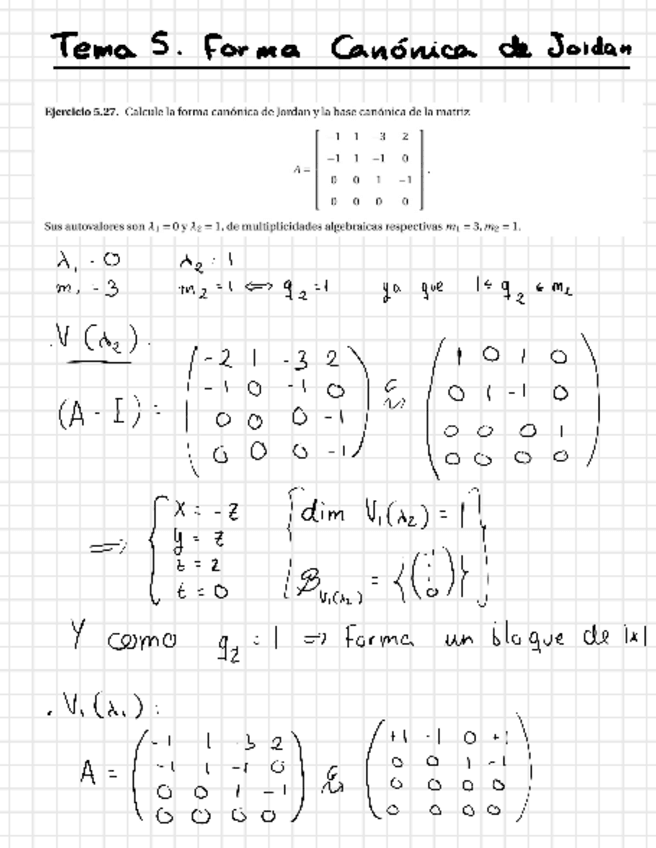 Tema 5. Forma Canónica de Jordan
Ejercicio 5.27. Calcule la forma canónica de Jordan y la base canónica de la matriz
-1 1 -3 2
A = -1 1 -1 0
0 0 1 -1
0 0 0 0
Sus autovalores son λ₁ = 0 y λ₂ = 1, de multiplicidades algebraicas respectivas m₁ = 3, m₂ = 1.
λ₁ = 0 λ₂ = 1
m₁ = 3 m₂ = 1 ⟺ g₂ = 1 ya que 1 ≤ g₂ ≤ m₂
· V (λ₂).
-2 1 -3 2 1 0 1 0
(A - I) = -1 0 -1 0 ~ 0 1 -1 0
0 0 0 -1 0 0 0 1
0 0 0 -1 0 0 0 0
⟹ x = -z dim V₁(λ₂) = 1
y = z
z = z B V₁(λ₂) =
t = 0
Y como g₂ = 1 ⟹ Forma un bloque de 1x1
· V₁(λ₁):
-1 1 -3 2 +1 -1 0 +1
A = -1 1 -1 0 ~ 0 0 1 -1
0 0 1 -1 0 0 0 0
0 0 0 0 0 0 0 0